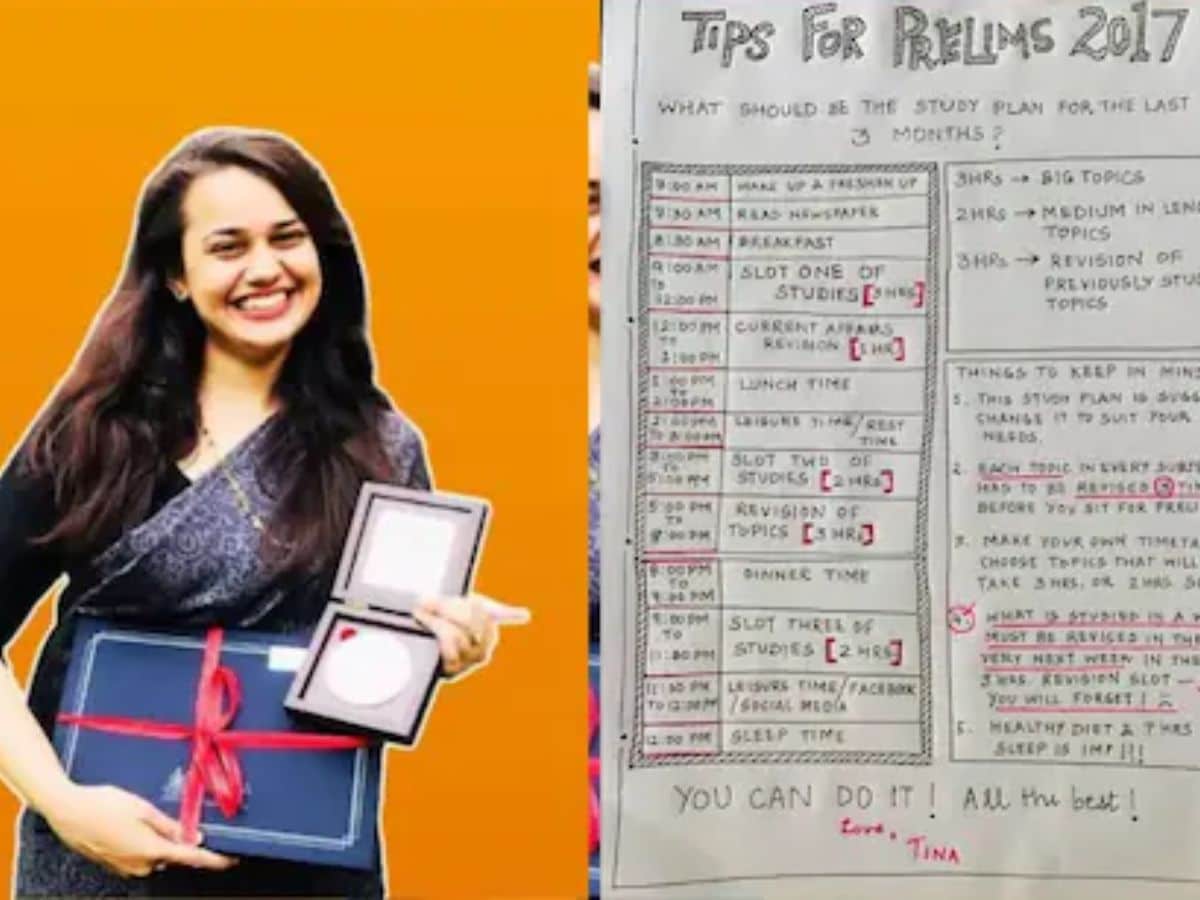 TIPS FOR PRELIMS 2017
WHAT SHOULD BE THE STUDY PLAN FOR THE LAST
3 MONTHS?
7:00 AM WAKE UP & FRESHEN UP
7:30 AM READ NEWSPAPER
8:30 AM BREAKFAST
9:00 AM
TO
12:00 PM
SLOT ONE OF
STUDIES [3 HRS]
12:00 PM
TO
1:00 PM
CURRENT AFFAIRS
REVISION [1 HR]
1:00 PM
TO
2:00 PM
LUNCH TIME
2:00 PM
TO 3:00 PM
LEISURE TIME/REST
TIME
3:00 PM
TO
5:00 PM
SLOT TWO OF
STUDIES [2 HRS]
5:00 PM
TO
8:00 PM
REVISION OF
TOPICS [3 HRS]
8:00 PM
TO
9:00 PM
DINNER TIME
9:00 PM
TO
11:30 PM
SLOT THREE OF
STUDIES [2 HRS]
11:30 PM
TO 12:00 PM
LEISURE TIME/FACEBOOK
/SOCIAL MEDIA
12:00 PM SLEEP TIME
3HRS → BIG TOPICS
2HRS → MEDIUM IN LEN
TOPICS
3HRS → REVISION OF
PREVIOUSLY STU
TOPICS
THINGS TO KEEP IN MIN
1. THIS STUDY PLAN IS SUGG
CHANGE IT TO SUIT YOUR
NEEDS.
2. EACH TOPIC IN EVERY SUBJ
HAS TO BE REVISED 3 TI
BEFORE YOU SIT FOR PREL
3. MAKE YOUR OWN TIMETA
CHOOSE TOPICS THAT WILL
TAKE 3 HRS. OR 2 HRS. S
4. WHAT IS STUDIED IN A
MUST BE REVISED IN THE
VERY NEXT WEEK IN THE
3 HRS. REVISION SLOT —
YOU WILL FORGET!
5. HEALTHY DIET & 7 HRS
SLEEP IS IMP!!!
YOU CAN DO IT! All the best!
Love,
TINA